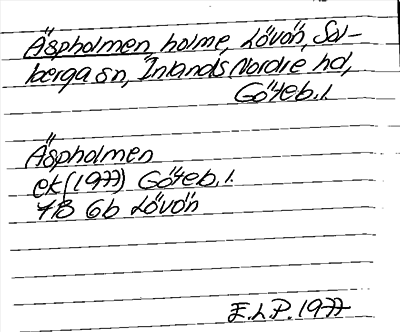 Äspholmen, holme, Lövön, Sol-
berga sn, Inlands Nordre hd,
Göteb. l.
Äspholmen
ek (1977) Göteb. l.
7B Gb Lövön
E.L.P. 1977